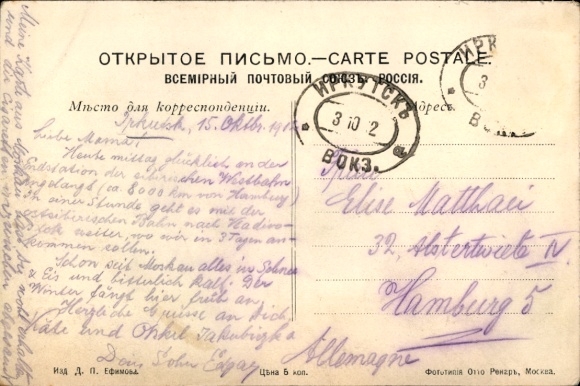 ОТКРЫТОЕ ПИСЬМО.—CARTE POSTALE.
ВСЕМІРНЫЙ ПОЧТОВЫЙ СОЮЗЪ. РОССІЯ.
Мѣсто для корреспонденціи.
Адресъ.
ИРКУТСКЪ
3 10 2
ВОКЗ.
ИРК
3
ВОКЗ.
Irkutsk, 15. Oktbr. 191
Liebe Mama!
Heute mittag glücklich an der
Endstation der sibirischen Westbahn
angelangt (ca. 8000 km von Hamburg)
In einer Stunde geht es mit der
ostsibirischen Bahn nach
weiter, wo wir in 3 Tagen an-
kommen sollen.
Schon seit Moskau alles in Schnee
& Eis und bitterlich kalt. Der
Winter fängt hier früh an.
Herzliche Grüsse an Dich,
Käte und Onkel
Dein Sohn Edgar
Meine Karte aus
und die Cigaretten
Frau
Elise Matthaei
32, Alsterterrasse IV.
Hamburg 5
Allemagne
Изд. Д. П. Ефимова.
Цѣна 5 коп.
Фототипія Отто Ренаръ, Москва.